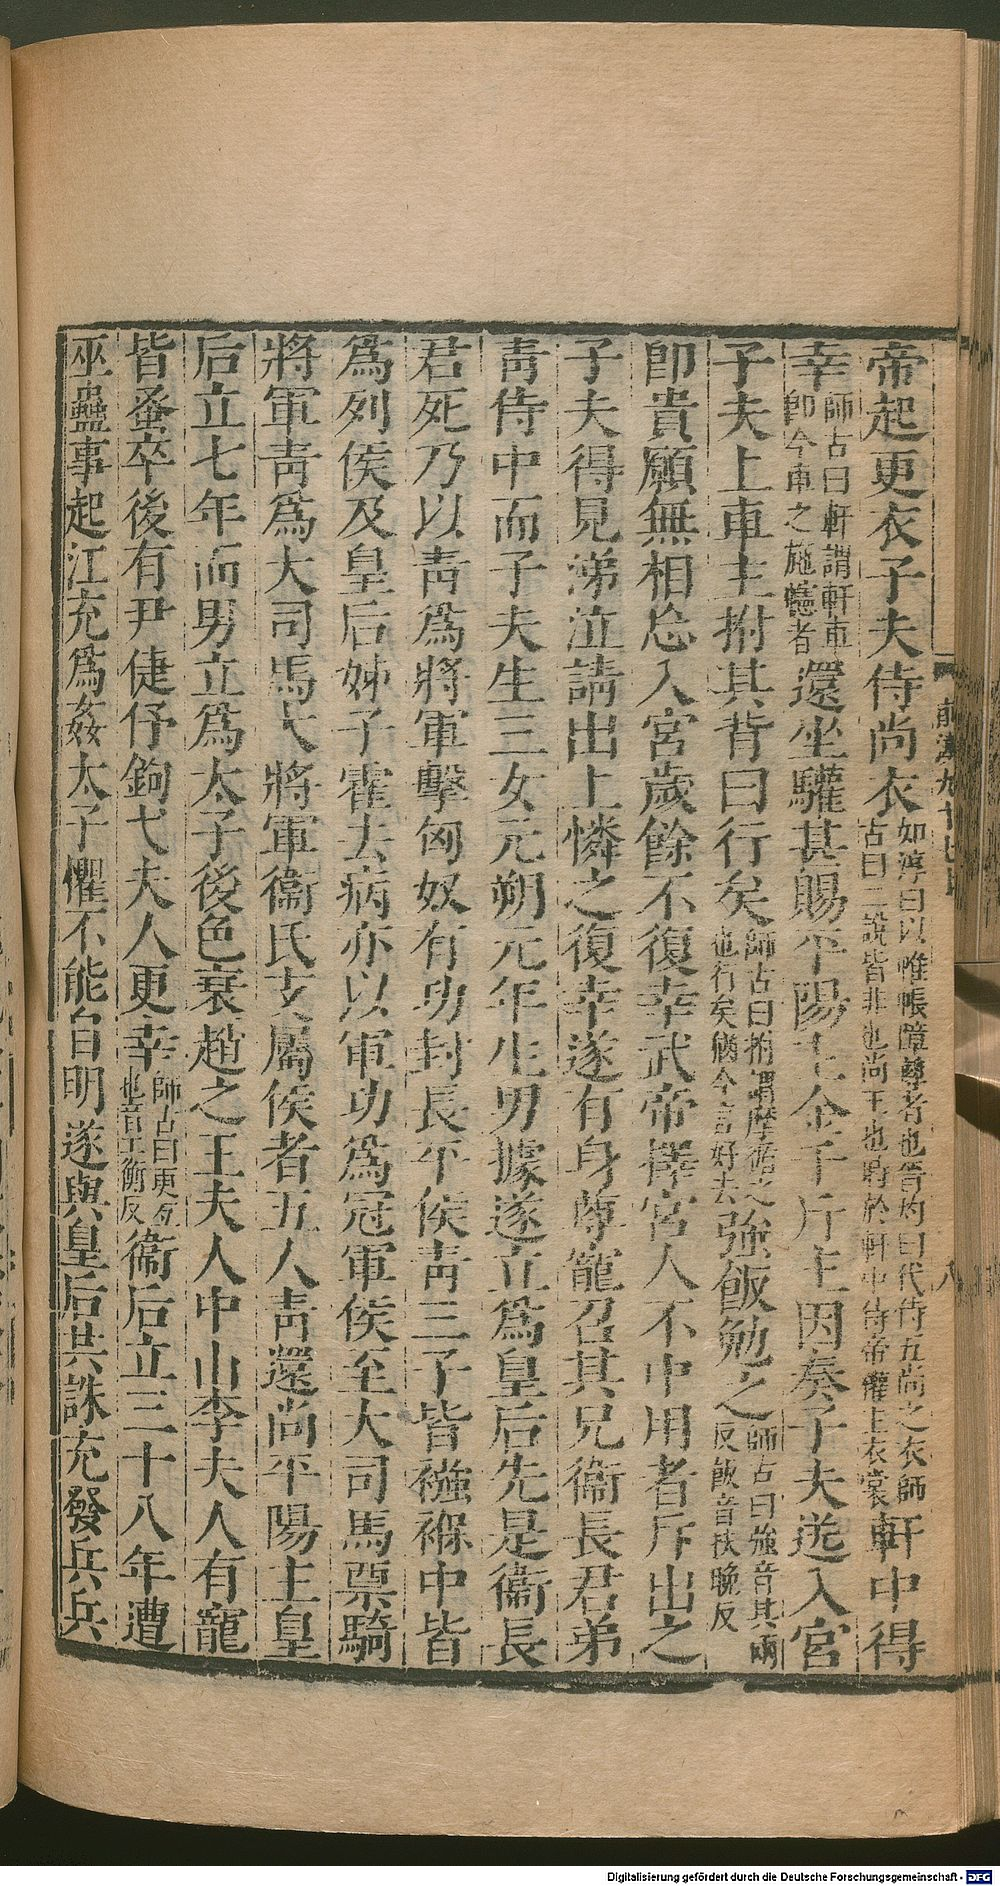 帝起更衣子夫侍尚衣如淳曰以帷帳障尊者也晉灼曰代侍五尚之衣師古曰二說皆非也尚主也時於軒中侍帝權主衣裳軒中得
幸師古曰軒謂軒車即今車之施幰者還坐驩甚賜平陽主金千斤主因奏子夫送入宮
子夫上車主拊其背曰行矣師古曰拊謂摩循之也行矣猶今言好去強飯勉之師古曰強音其兩反飯音扶晚反
即貴願無相忘入宮歲餘不復幸武帝擇宮人不中用者斥出之
子夫得見涕泣請出上憐之復幸遂有身尊寵召其兄衞長君弟
靑侍中而子夫生三女元朔元年生男據遂立爲皇后先是衞長
君死乃以靑爲將軍擊匈奴有功封長平侯靑三子皆襁褓中皆
爲列侯及皇后姊子霍去病亦以軍功爲冠軍侯至大司馬票騎
將軍靑爲大司馬大將軍衞氏支屬侯者五人靑還尚平陽主皇
后立七年而男立爲太子後色衰趙之王夫人中山李夫人有寵
皆蚤卒後有尹倢伃鉤弋夫人更幸師古曰更互也音工衡反衞后立三十八年遭
巫蠱事起江充爲姦太子懼不能自明遂與皇后共誅充發兵兵
前漢九十七上
八
Digitalisierung gefördert durch die Deutsche Forschungsgemeinschaft - DFG